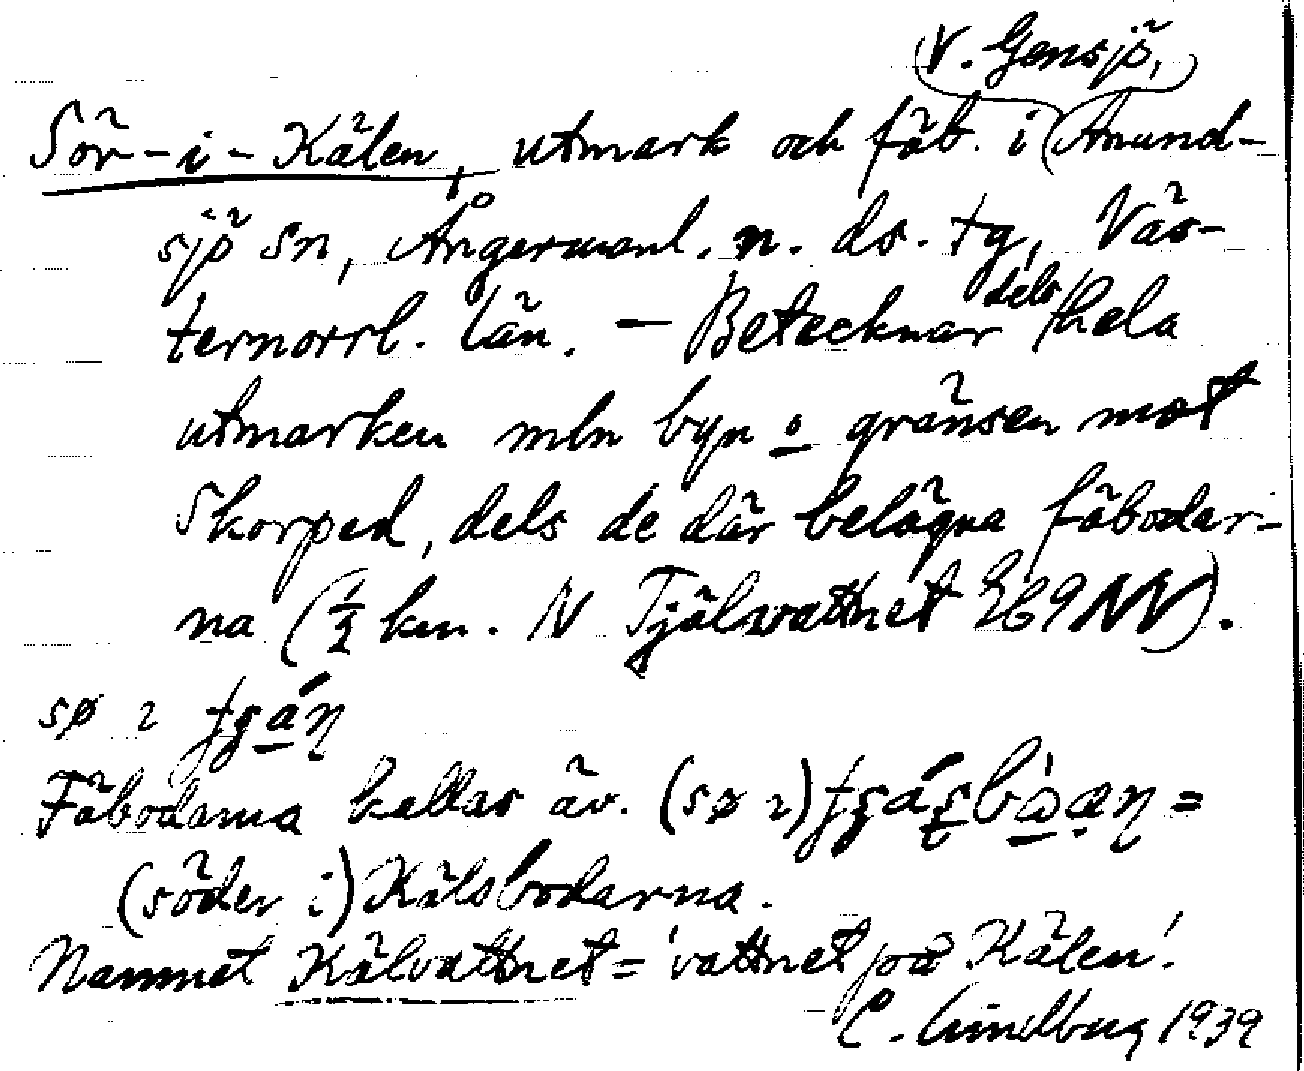 V. Gensjö,
Sör-i-Kälen, utmark och fäb. i Anund-
sjö sn, Ångermanl. n. ds. tg, Väs-
ternorrl. län. — Betecknar dels hela
utmarken mln byn o gränsen mot
Skorped, dels de där belägna fäbodar-
na (½ km. N Tjälvattnet Eb9NV).
sø ı
Fäbodarna kallas äv. (sø ı) =
(söder i) Kälsbodarna.
Namnet Kälvattnet = 'vattnet på Kälen'.
C. Lindberg 1939